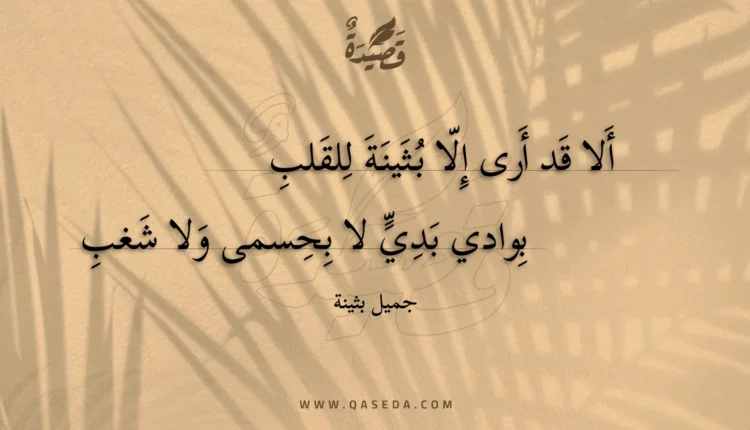 قَصِيْدَةٌ
أَلا قَد أَرى إِلّا بُثَينَةَ لِلقَلبِ
بِوادي بَدِيٍّ لا بِحِسمى وَلا شَغبِ
جميل بثينة
WWW.QASEDA.COM